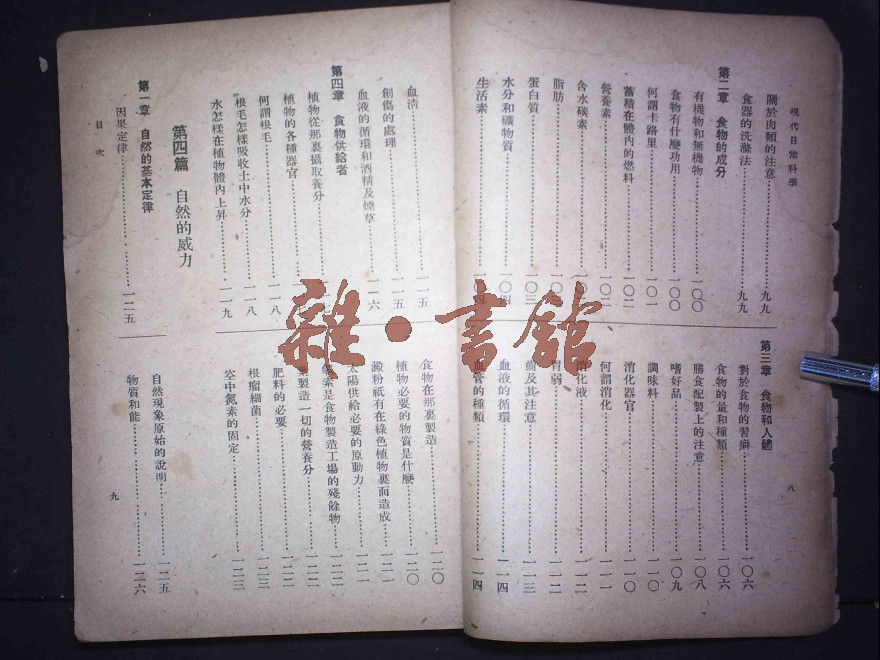 現代日常科學
關於肉類的注意……九九
食器的洗滌法……九九
第二章 食物的成分
有機物和無機物……一〇〇
食物有什麼功用……一〇〇
何謂卡路里……一〇一
蓄積在體內的燃料……一〇二
營養素……一〇二
含水碳素……
脂肪……
蛋白質……
水分和礦物質……
生活素……一〇四
第三章 食物和人體
對於食物的習癖……一〇六
食物的量和種類……一〇六
膳食配製上的注意……一〇八
嗜好品……一〇九
調味料……一一〇
消化器官……一一〇
何謂消化……一一一
消化液……一一二
胃弱……一一二
齒及其注意……一一三
血液的循環……一一四
血管的種類……一一四
八
血淸……一一五
創傷的處理……一一五
血液的循環和酒精及煙草……一一六
第四章 食物供給者
植物從那裏攝取養分……
植物的各種器官……
何謂根毛……一一八
根毛怎樣吸收土中水分……一一八
水怎樣在植物體內上昇……一一九
第四篇 自然的威力
第一章 自然的基本定律
因果定律……一二五
目次
食物在那裏製造……一二〇
植物必要的物質是什麼……一二〇
澱粉祇有在綠色植物裏面造成……一二一
太陽供給必要的原動力……一二一
素是食物製造工場的殘餘物……一二二
製造一切的營養分……一二二
肥料的必要……一二二
根瘤細菌……一二三
空中氮素的固定……一二三
自然現象原始的說明……一二五
物質和能……一二六
九
雜·書館